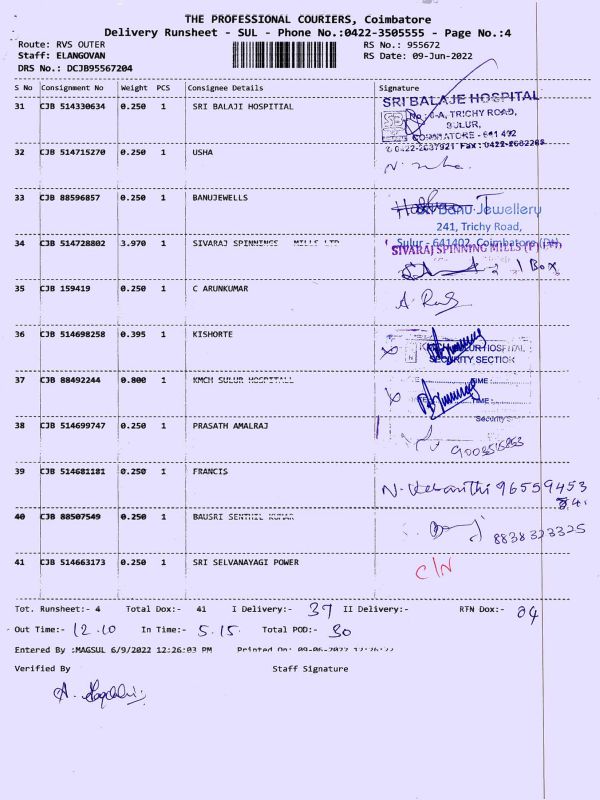 THE PROFESSIONAL COURIERS, Coimbatore
Delivery Runsheet - SUL - Phone No.:0422-3505555 - Page No.:4
Route: RVS OUTER RS No.: 955672
Staff: ELANGOVAN RS Date: 09-Jun-2022
DRS No.: DCJB95567204
S No Consignment No Weight PCS Consignee Details Signature
31 CJB 514330634 0.250 1 SRI BALAJI HOSPITIAL
SRI BALAJE HOSPITAL
TRICHY ROAD,
SULUR,
COIMBATORE - 641 402
32 CJB 514715270 0.250 1 USHA
33 CJB 88596857 0.250 1 BANUJEWELLS
Banu Jewellery
241, Trichy Road,
Sulur - 641402, Coimbatore (Dt)
34 CJB 514728802 3.970 1 SIVARAJ SPINNINGS MILLS LTD
SIVARAJ SPINNING MILLS (P)
1 Box
35 CJB 159419 0.250 1 C ARUNKUMAR
36 CJB 514698258 0.395 1 KISHORTE
HOSPITAL
SECURITY SECTION
37 CJB 88492244 0.800 1 KMCH SULUR HOSPITALL
TIME :
TIME :
Security
38 CJB 514699747 0.250 1 PRASATH AMALRAJ
39 CJB 514681181 0.250 1 FRANCIS
96559453
40 CJB 88507549 0.250 1 BAUSRI SENTHIL KUMAR
8838323325
41 CJB 514663173 0.250 1 SRI SELVANAYAGI POWER C/N
Tot. Runsheet:- 4 Total Dox:- 41 I Delivery:- 37 II Delivery:- RTN Dox:- 04
Out Time:- 12.10 In Time:- 5.15. Total POD:- 30
Entered By :MAGSUL 6/9/2022 12:26:03 PM Printed On: 09-06-2022
Verified By Staff Signature